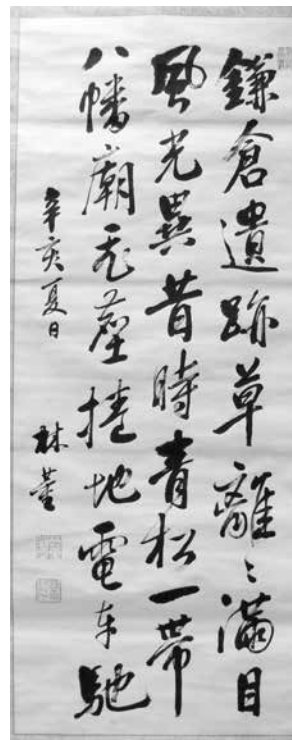 鎌倉遺跡草離〻滿目
風光異昔時青松一帶
八幡廟尨塵捲地電車馳
辛亥夏日
林董